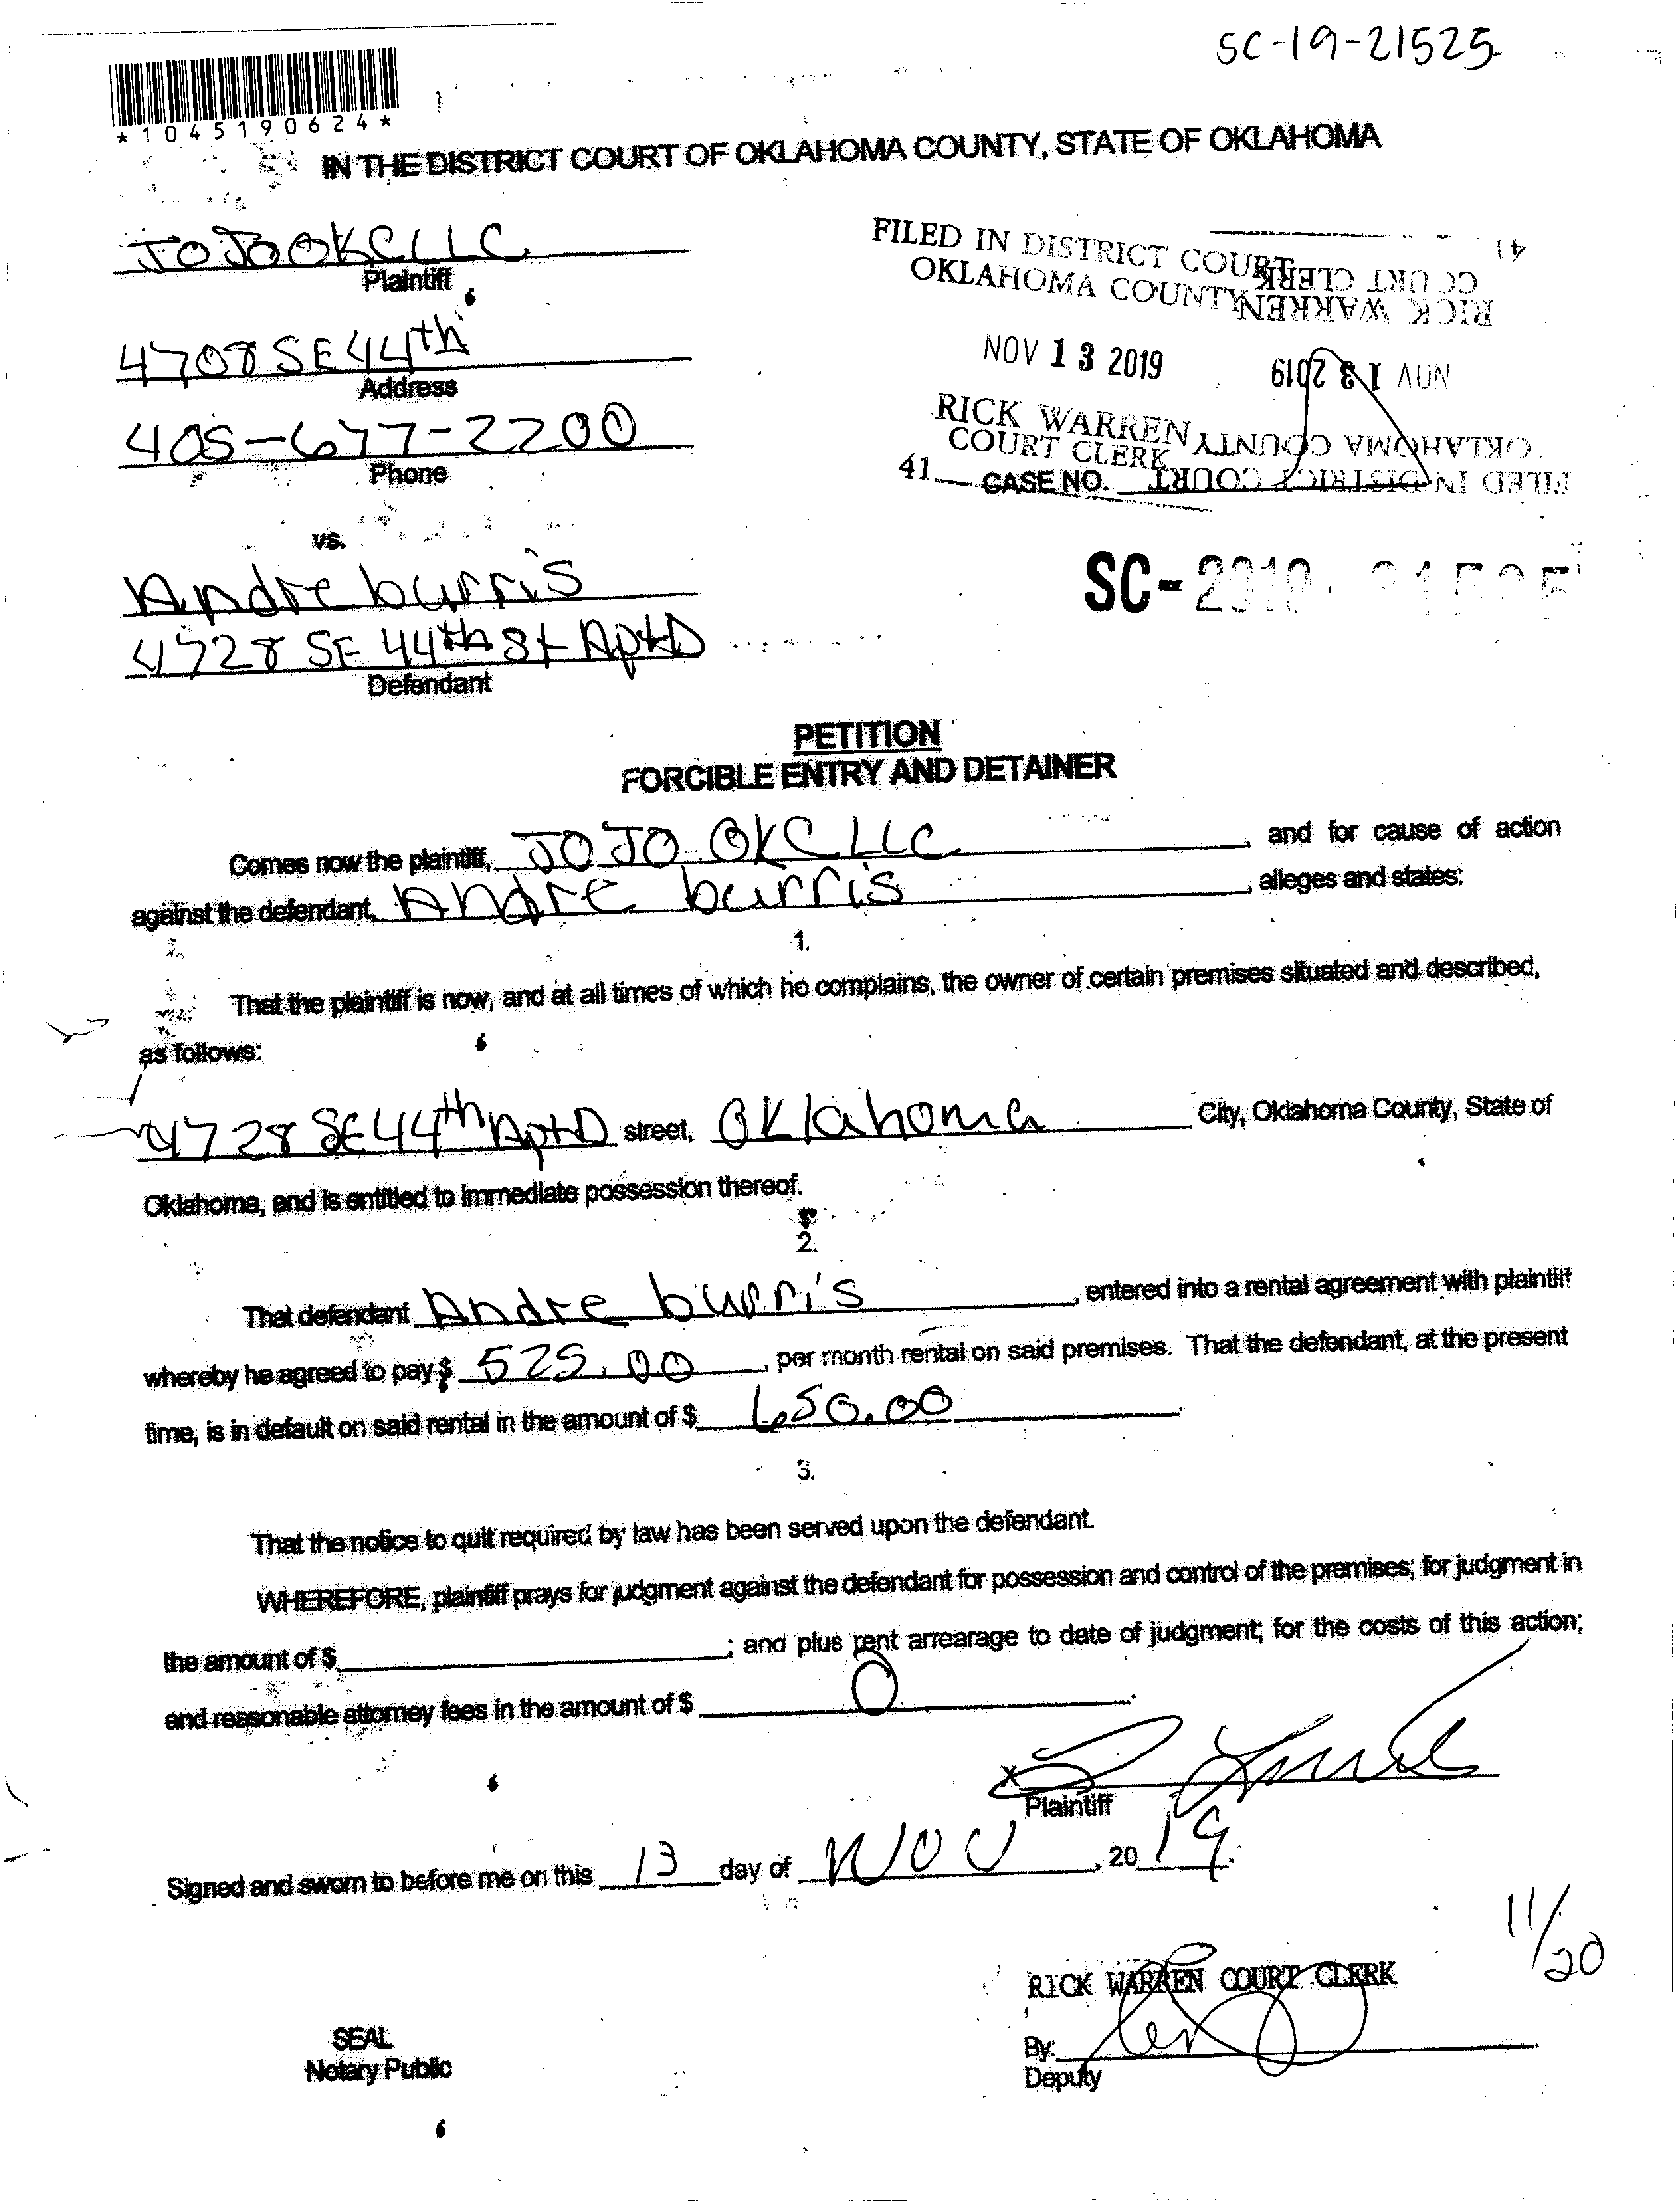 SC-19-21525
*1045190624*
IN THE DISTRICT COURT OF OKLAHOMA COUNTY, STATE OF OKLAHOMA
JO JO OKC LLC
Plaintiff
4708 SE 44th
Address
405-677-2200
Phone
vs.
Andre burris
4728 SE 44th St Apt D
Defendant
FILED IN DISTRICT COURT
OKLAHOMA COUNTY
NOV 13 2019
RICK WARREN
COURT CLERK
41
CASE NO.
FILED IN DISTRICT COURT
OKLAHOMA COUNTY
NOV 13 2019
RICK WARREN
COURT CLERK
41
SC-2019-21525
PETITION
FORCIBLE ENTRY AND DETAINER
Comes now the plaintiff, JO JO OKC LLC, and for cause of action
against the defendant, Andre burris, alleges and states:
1.
That the plaintiff is now, and at all times of which he complains, the owner of certain premises situated and described,
as follows:
4728 SE 44th Apt D street, Oklahoma City, Oklahoma County, State of
Oklahoma, and is entitled to immediate possession thereof.
2.
That defendant Andre burris, entered into a rental agreement with plaintiff
whereby he agreed to pay $ 525.00, per month rental on said premises. That the defendant, at the present
time, is in default on said rental in the amount of $ 650.00.
3.
That the notice to quit required by law has been served upon the defendant.
WHEREFORE, plaintiff prays for judgment against the defendant for possession and control of the premises; for judgment in
the amount of $ ; and plus rent arrearage to date of judgment; for the costs of this action;
and reasonable attorney fees in the amount of $ 0.
X
Plaintiff
Signed and sworn to before me on this 13 day of NOV, 2019.
11/20
RICK WARREN COURT CLERK
SEAL
Notary Public
By:
Deputy